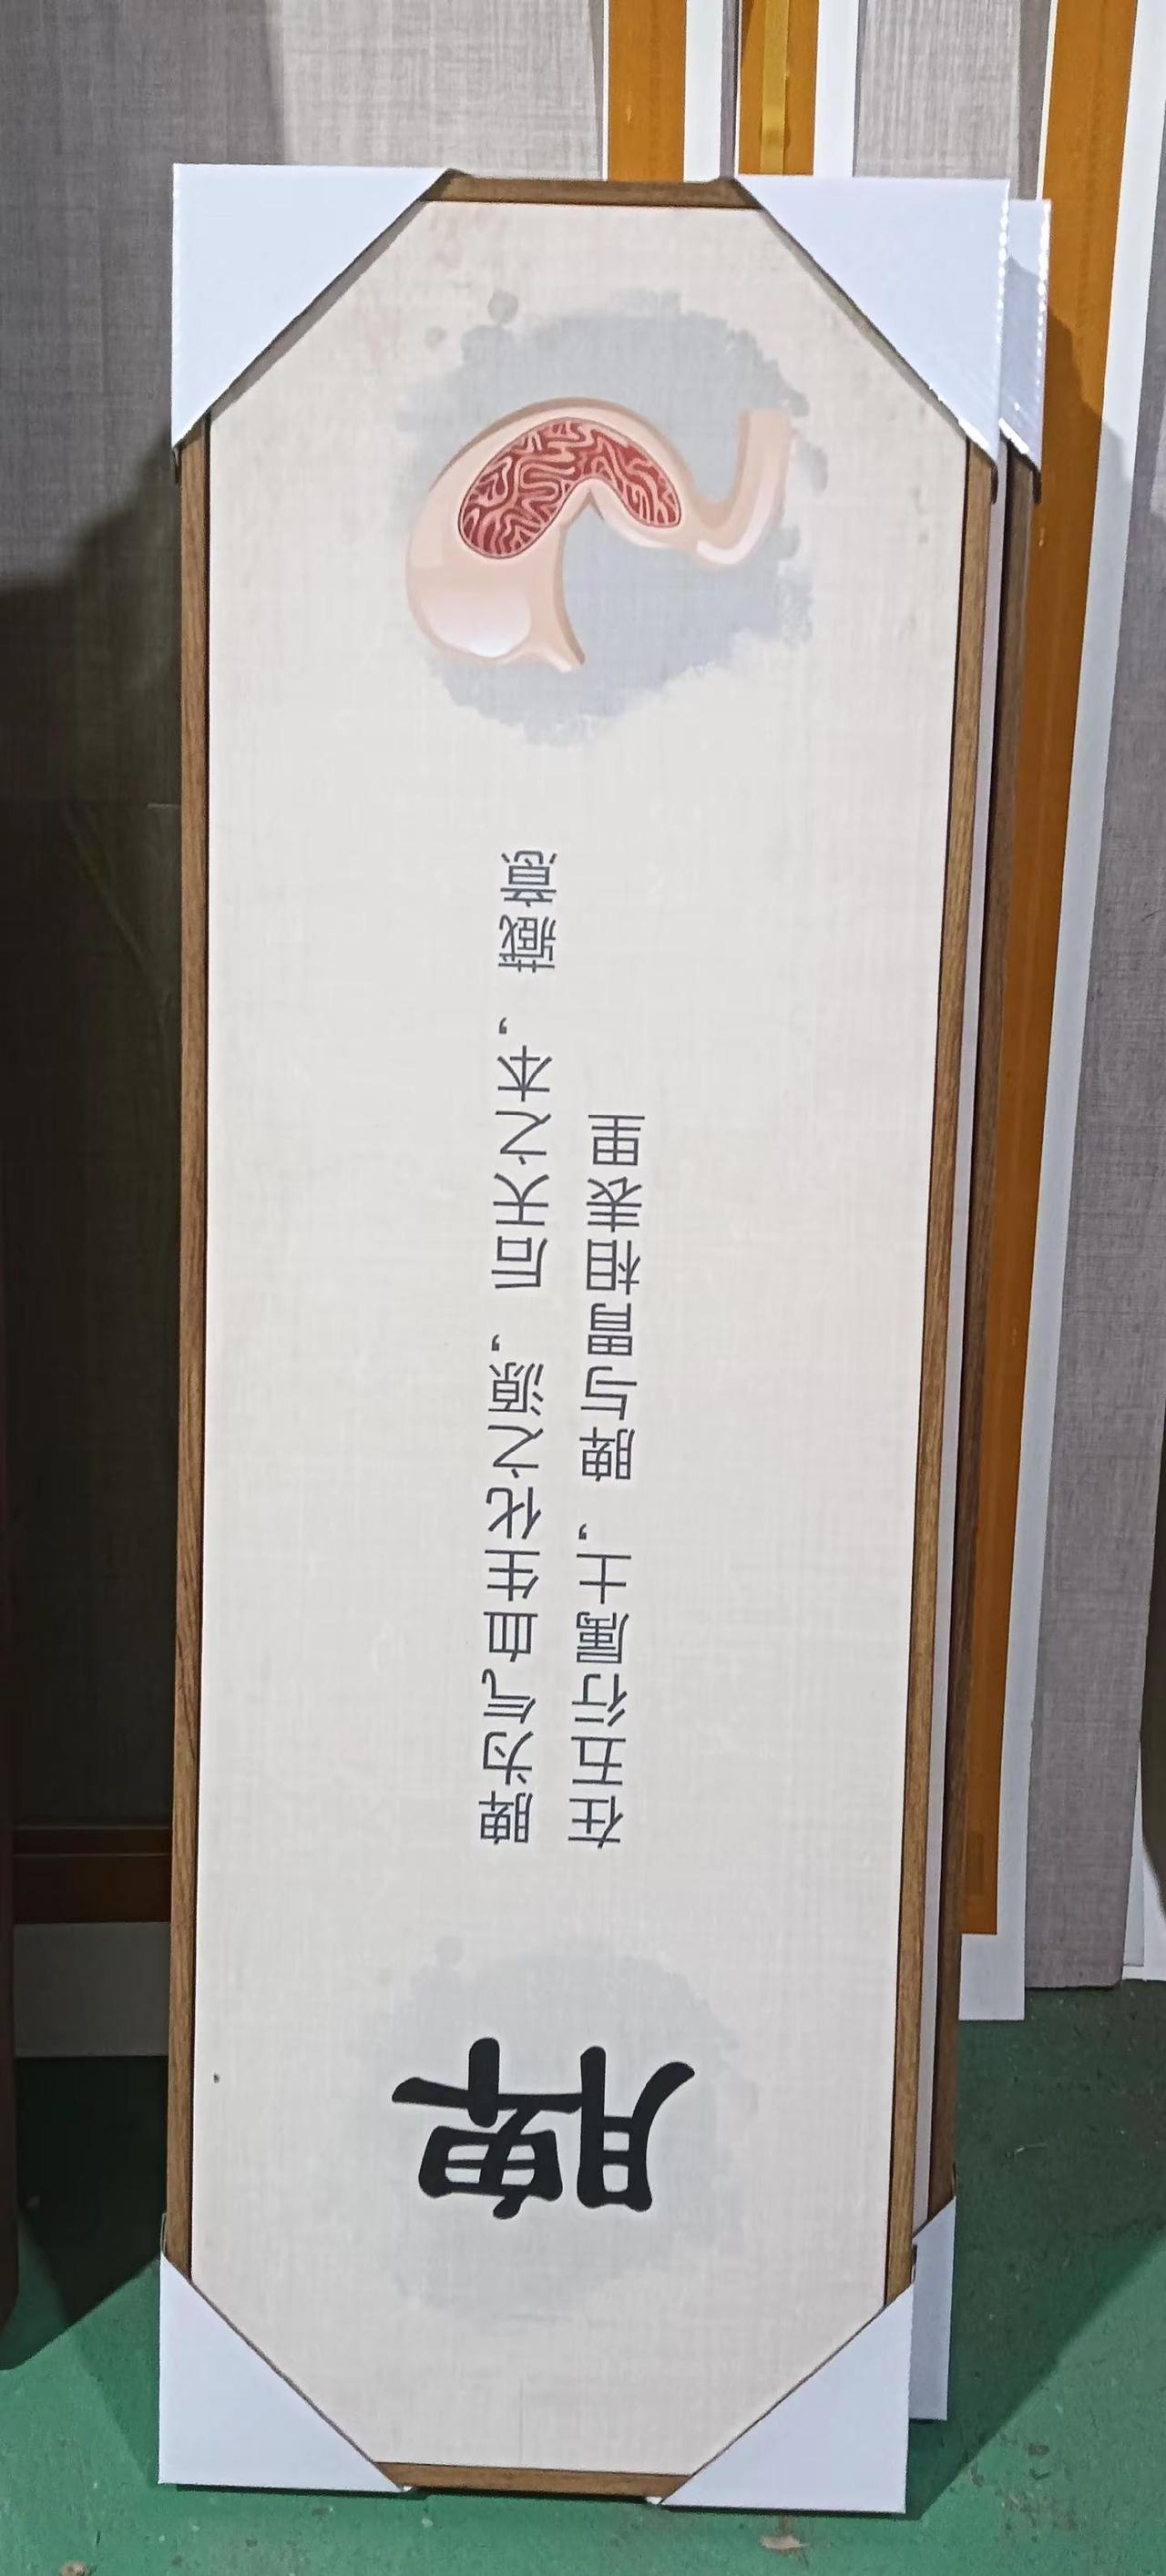 脾
脾为气血生化之源，后天之本，藏意
在五行属土，脾与胃相表里